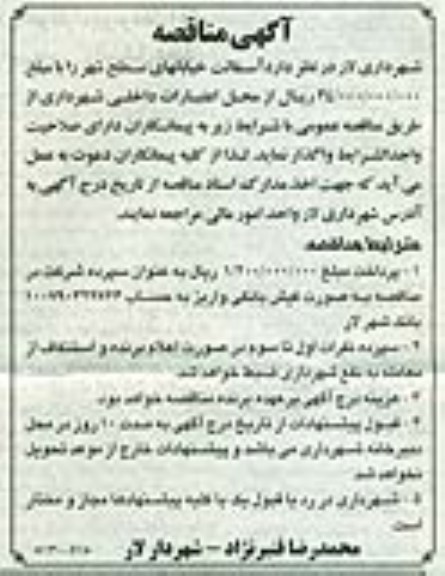 آگهی مناقصه
شهرداری لار در نظر دارد آسفالت خیابانهای سطح شهر را با مبلغ
ریال از محل اعتبارات داخلی شهرداری از
طریق مناقصه عمومی با شرایط زیر به پیمانکاران دارای صلاحیت
واجدالشرایط واگذار نماید. لذا از کلیه پیمانکاران دعوت به عمل
می آید که جهت اخذ مدارک اسناد مناقصه از تاریخ درج آگهی به
آدرس شهرداری لار واحد امور مالی مراجعه نمایند.
شرایط مناقصه
۱ - پرداخت مبلغ ۱/۲۰۰/۰۰۰/۰۰۰ ریال به عنوان سپرده شرکت در
مناقصه به صورت فیش بانکی واریز به حساب
بانک شهر لار
۲ - سپرده نفرات اول تا سوم در صورت اعلام برنده و استنکاف از
معامله به نفع شهرداری ضبط خواهد شد.
۳ - هزینه درج آگهی بر عهده برنده مناقصه خواهد بود.
۴ - قبول پیشنهادات از تاریخ درج آگهی به مدت ۱۰ روز در محل
دبیرخانه شهرداری می باشد و پیشنهادات خارج از موعد تحویل
نخواهد شد
۵ - شهرداری در رد یا قبول یک یا کلیه پیشنهادها مجاز و مختار
است.
محمدرضا قنبرنژاد - شهردار لار